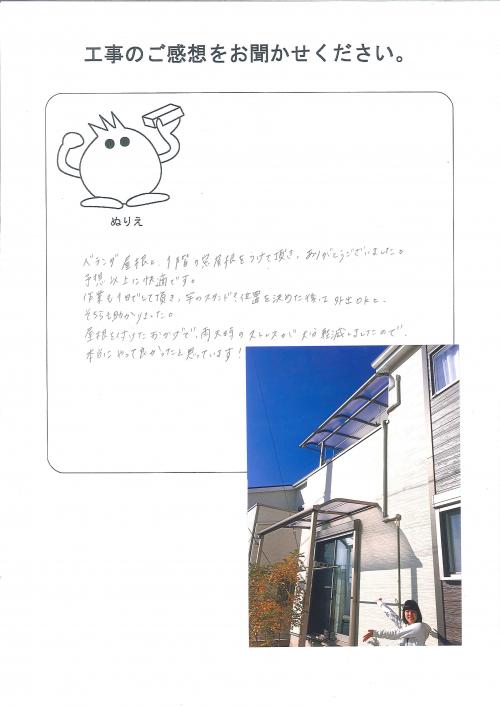 工事のご感想をお聞かせください。
ぬりえ
ベランダ屋根と、1階の窓屋根をつけて頂き、ありがとうございました。
予想以上に快適です。
作業も1日でして頂き、竿のスタンドも位置を決めた後は外出OKと、
そちらも助かりました。
屋根を付けたおかげで、雨天時のストレスが大分軽減しましたので、
本当にやって良かったと思っています!